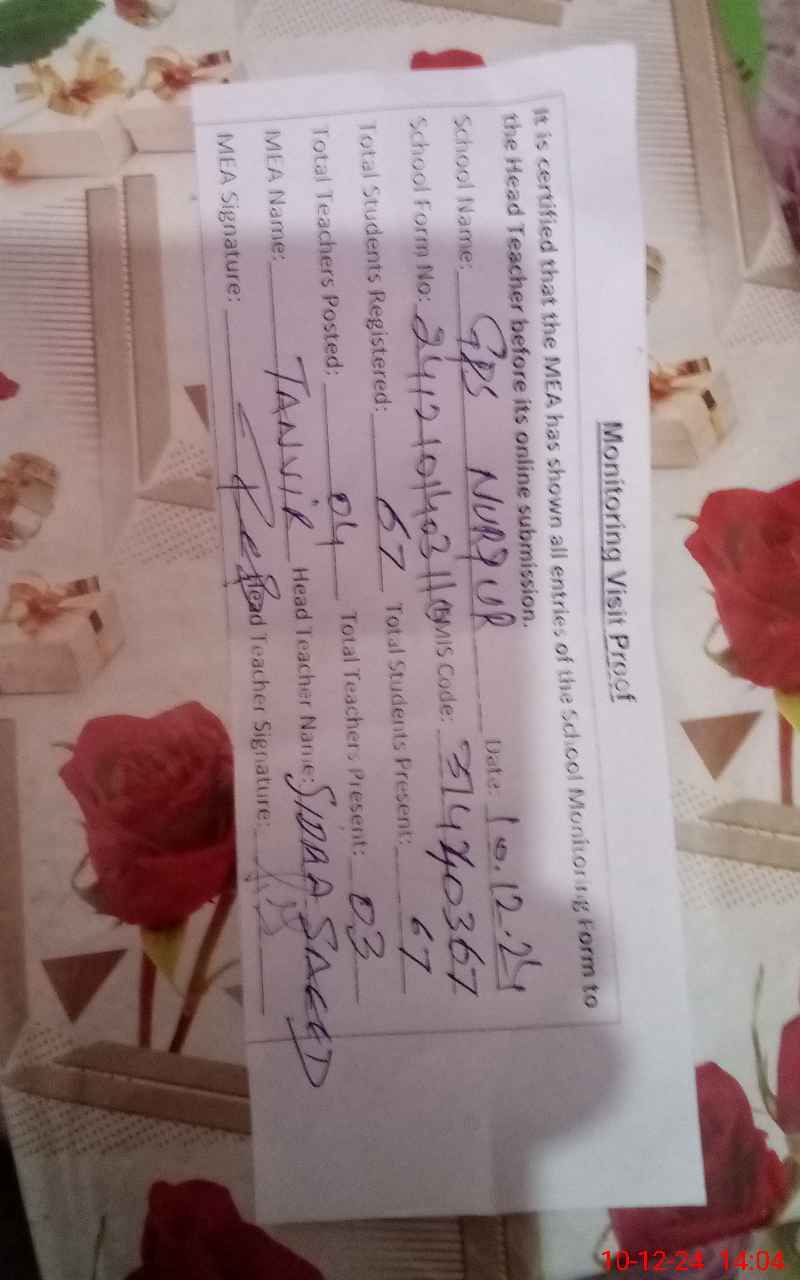 Monitoring Visit Proof
It is certified that the MEA has shown all entries of the School Monitoring Form to
the Head Teacher before its online submission.
School Name: GPS NURPUR Date: 10.12.24
School Form No: EMIS Code:
Total Students Registered: 67 Total Students Present: 67
Total Teachers Posted: 04 Total Teachers Present: 03
MEA Name: TANVIR Head Teacher Name: SIDRA SAEED
MEA Signature: Head Teacher Signature:
10-12-24 14:04